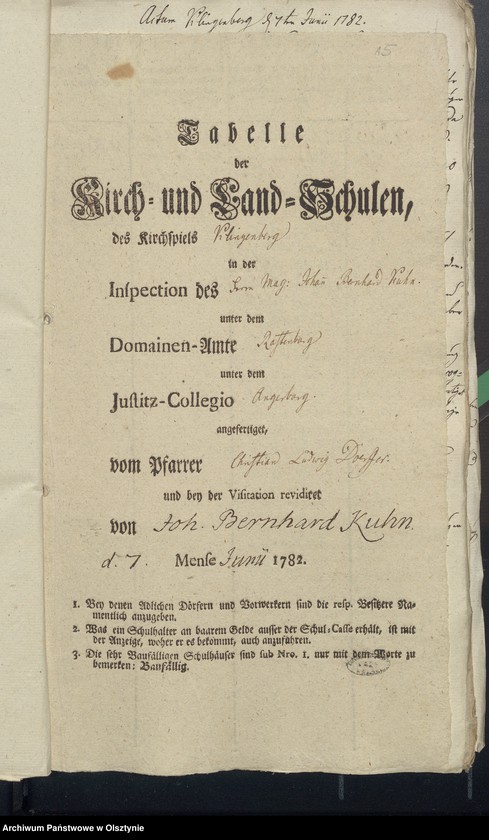 Actum Klingenberg d 7ten Junii 1782.
15
Tabelle
der
Kirch- und Land-Schulen,
des Kirchspiels Klingenberg
in der
Inspection des Herrn Mag: Johan̄ Bernhard Kuhn.
unter dem
Domainen-Amte Rastenburg
unter dem
Justitz-Collegio Angerburg.
angefertiget,
vom Pfarrer Christian Ludwig
und bey der Visitation revidiret
von Joh. Bernhard Kuhn.
d. 7. Mense Junii 1782.
1. Bey denen Adlichen Dörfern und Vorwerkern sind die resp. Besitzere Na-
mentlich anzugeben.
2. Was ein Schulhalter an baarem Gelde ausser der Schul-Casse erhält, ist mit
der Anzeige, woher er es bekommt, auch anzuführen.
3. Die sehr Baufälligen Schulhäuser sind sub Nro. 1. nur mit dem Worte zu
bemerken: Baufällig.
Archiwum Państwowe w Olsztynie